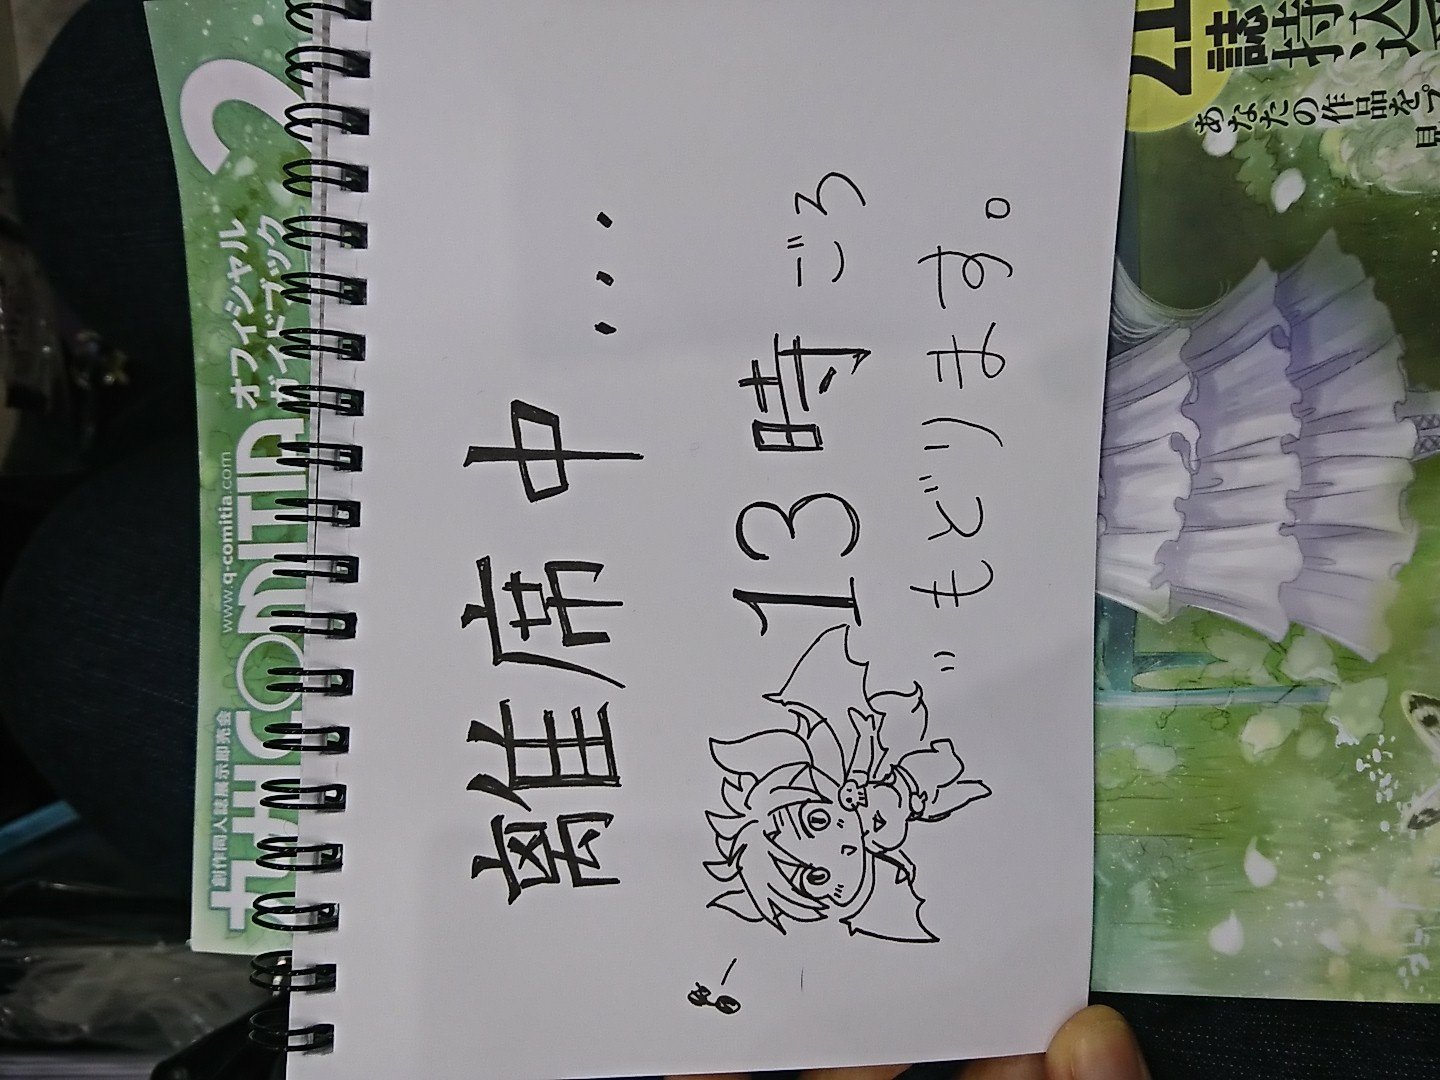 離席中...
13時ごろ
もどります。
創作同人誌展示即売会
www.q-comitia.com
オフィシャル
ガイドブック
2
21
誌持込
あなたの作品をプ
見